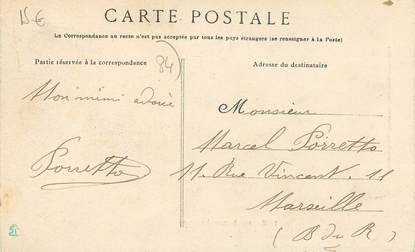 15 €
CARTE POSTALE
La Correspondance au recto n'est pas acceptée par tous les pays étrangers (se renseigner à la Poste)
Partie réservée à la correspondance
84)
Adresse du destinataire
Mon mimi adoré
Porretto
Monsieur
Marcel Porretto
11. Rue Vincent. 11
Marseille
(B du R)